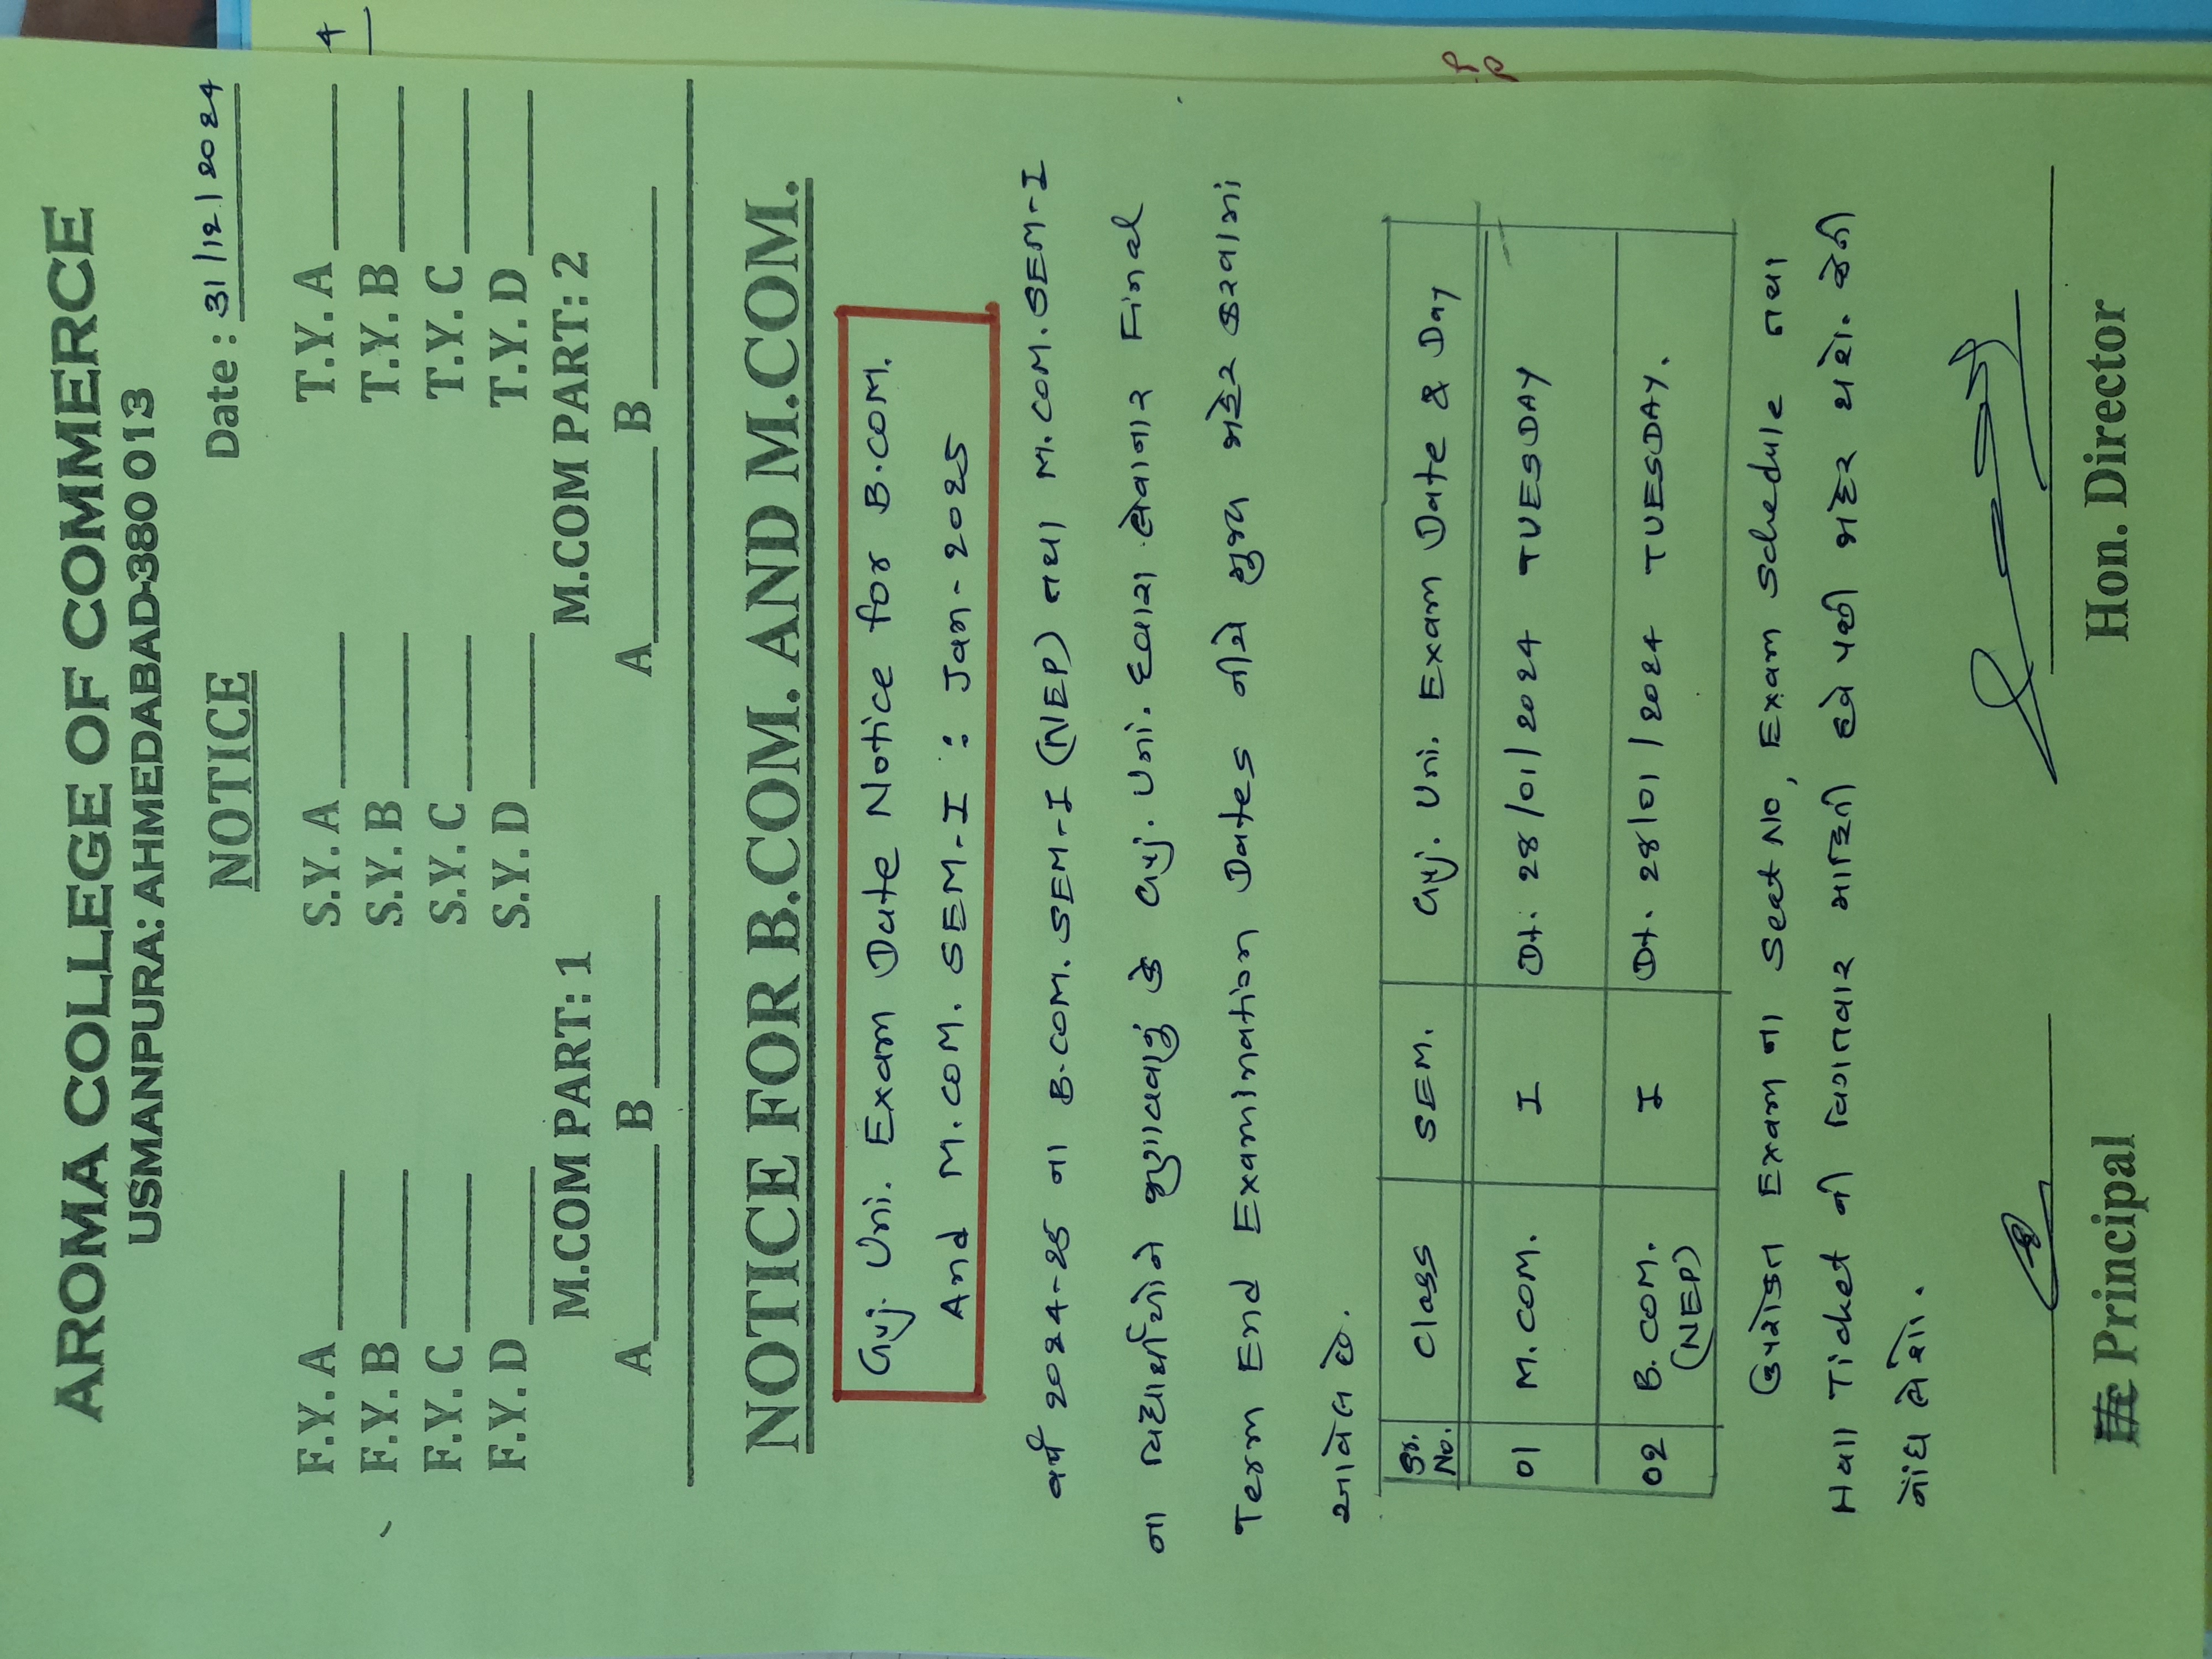 AROMA COLLEGE OF COMMERCE
USMANPURA: AHMEDABAD-380 013
NOTICE Date : 31/12/2024
F.Y. A ____ S.Y. A ____ T.Y. A ____
F.Y. B ____ S.Y. B ____ T.Y. B ____
F.Y. C ____ S.Y. C ____ T.Y. C ____
F.Y. D ____ S.Y. D ____ T.Y. D ____
M.COM PART: 1 M.COM PART: 2
A ____ B ____ A ____ B ____
NOTICE FOR B.COM. AND M.COM.
Guj. Uni. Exam Date Notice for B.COM.
And M.COM. SEM-I : Jan-2025
વર્ષ 2024-25 ના B.COM. SEM-I (NEP) તથા M.COM. SEM-I
ના વિદ્યાર્થીઓને જણાવવાનું કે Guj. Uni. દ્વારા લેવાનાર Final
Term End Examination Dates નીચે મુજબ જાહેર કરવામાં
આવેલ છે.
Sr. No. Class SEM. Guj. Uni. Exam Date & Day
01 M.COM. I Dt. 28/01/2024 TUESDAY
02 B.COM. (NEP) I Dt. 28/01/2024 TUESDAY.
ઉપરોક્ત Exam ના Seat No, Exam Schedule તથા
Hall Ticket ની વિગતવાર માહિતી હવે પછી જાહેર થશે. જેની
નોંધ લેશો.
Principal Hon. Director